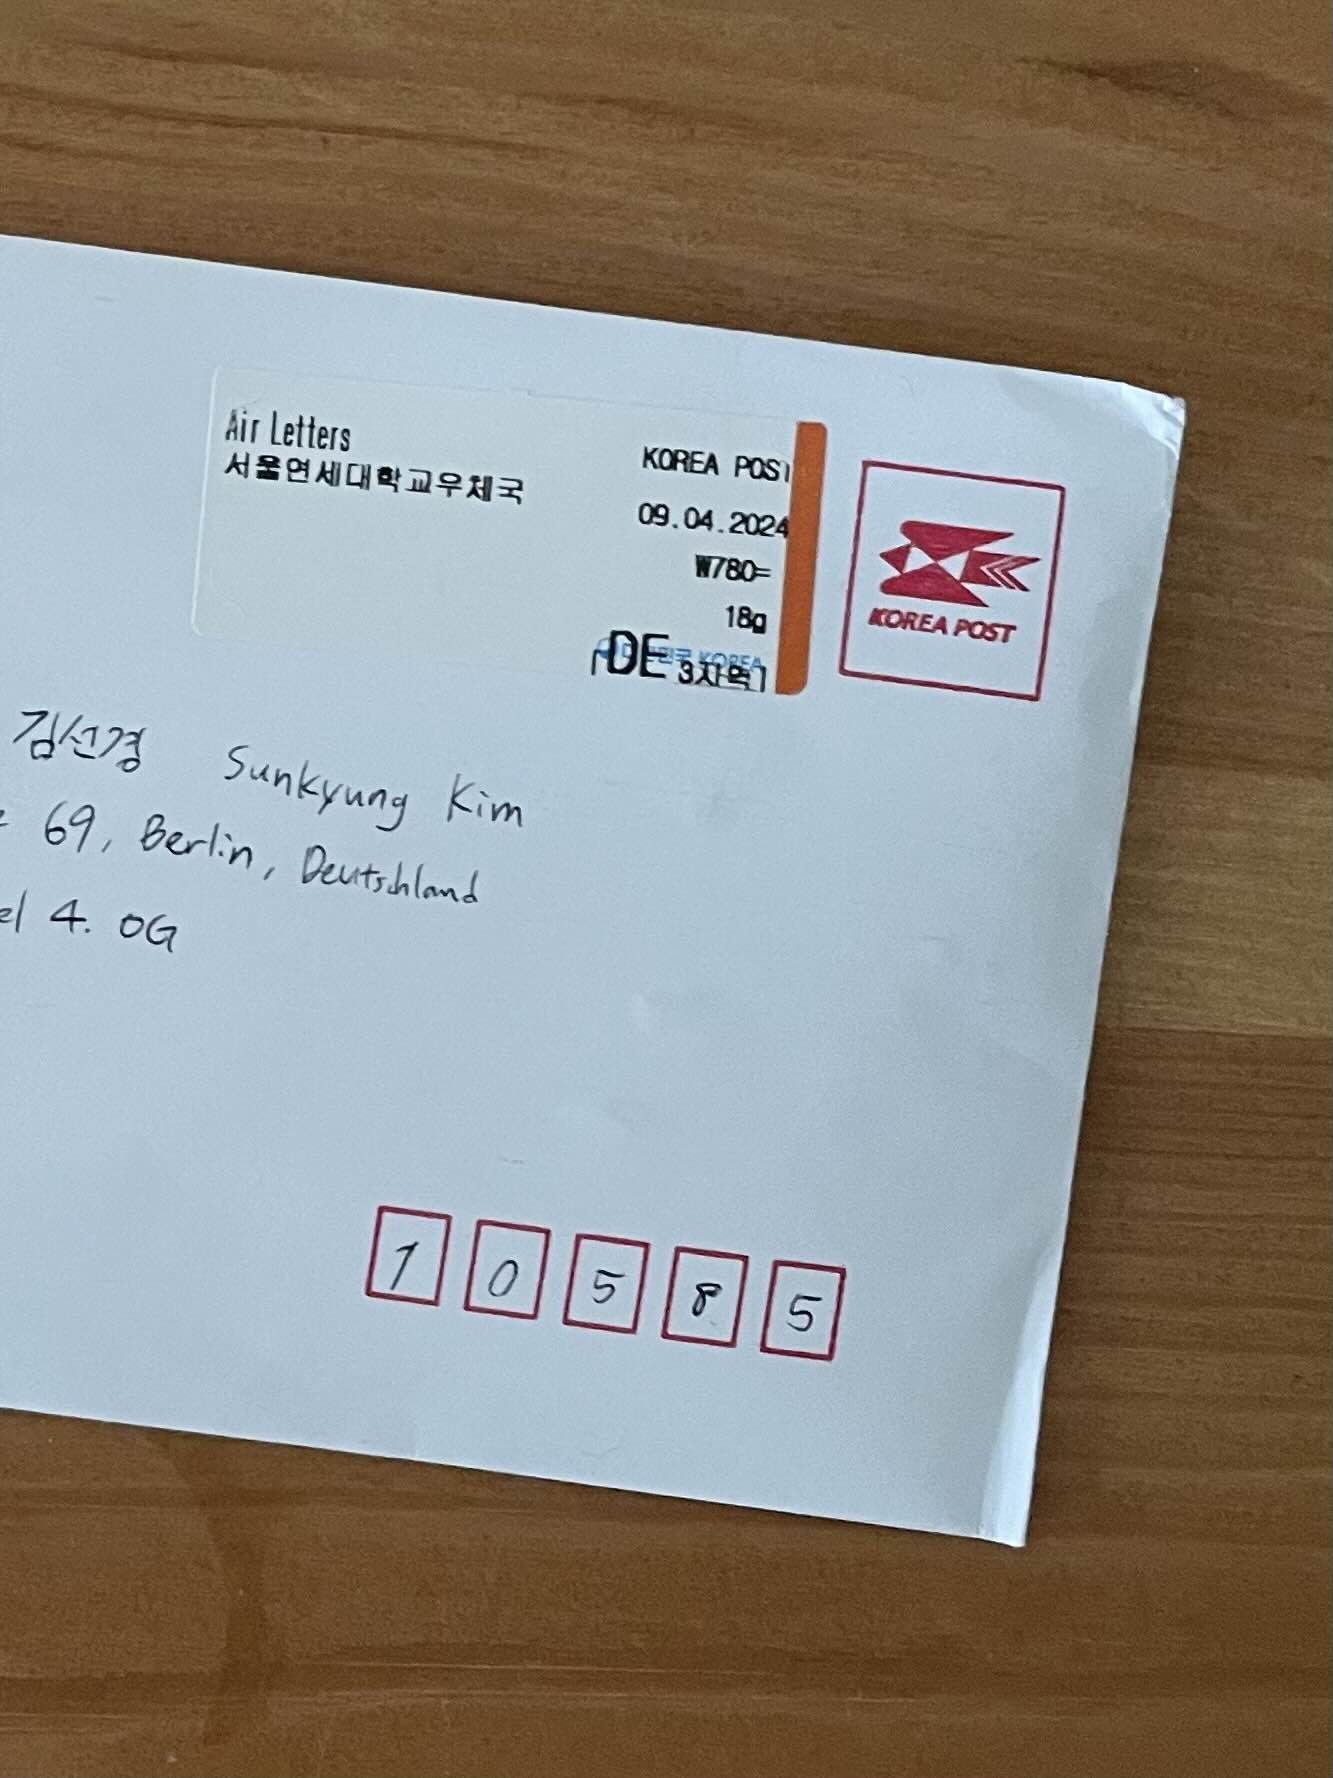 Air Letters
서울연세대학교우체국
KOREA POST
09.04.2024
₩780=
18g
DE 3지역
KOREA POST
김선경 Sunkyung Kim
69, Berlin, Deutschland
4. OG
1 0 5 8 5